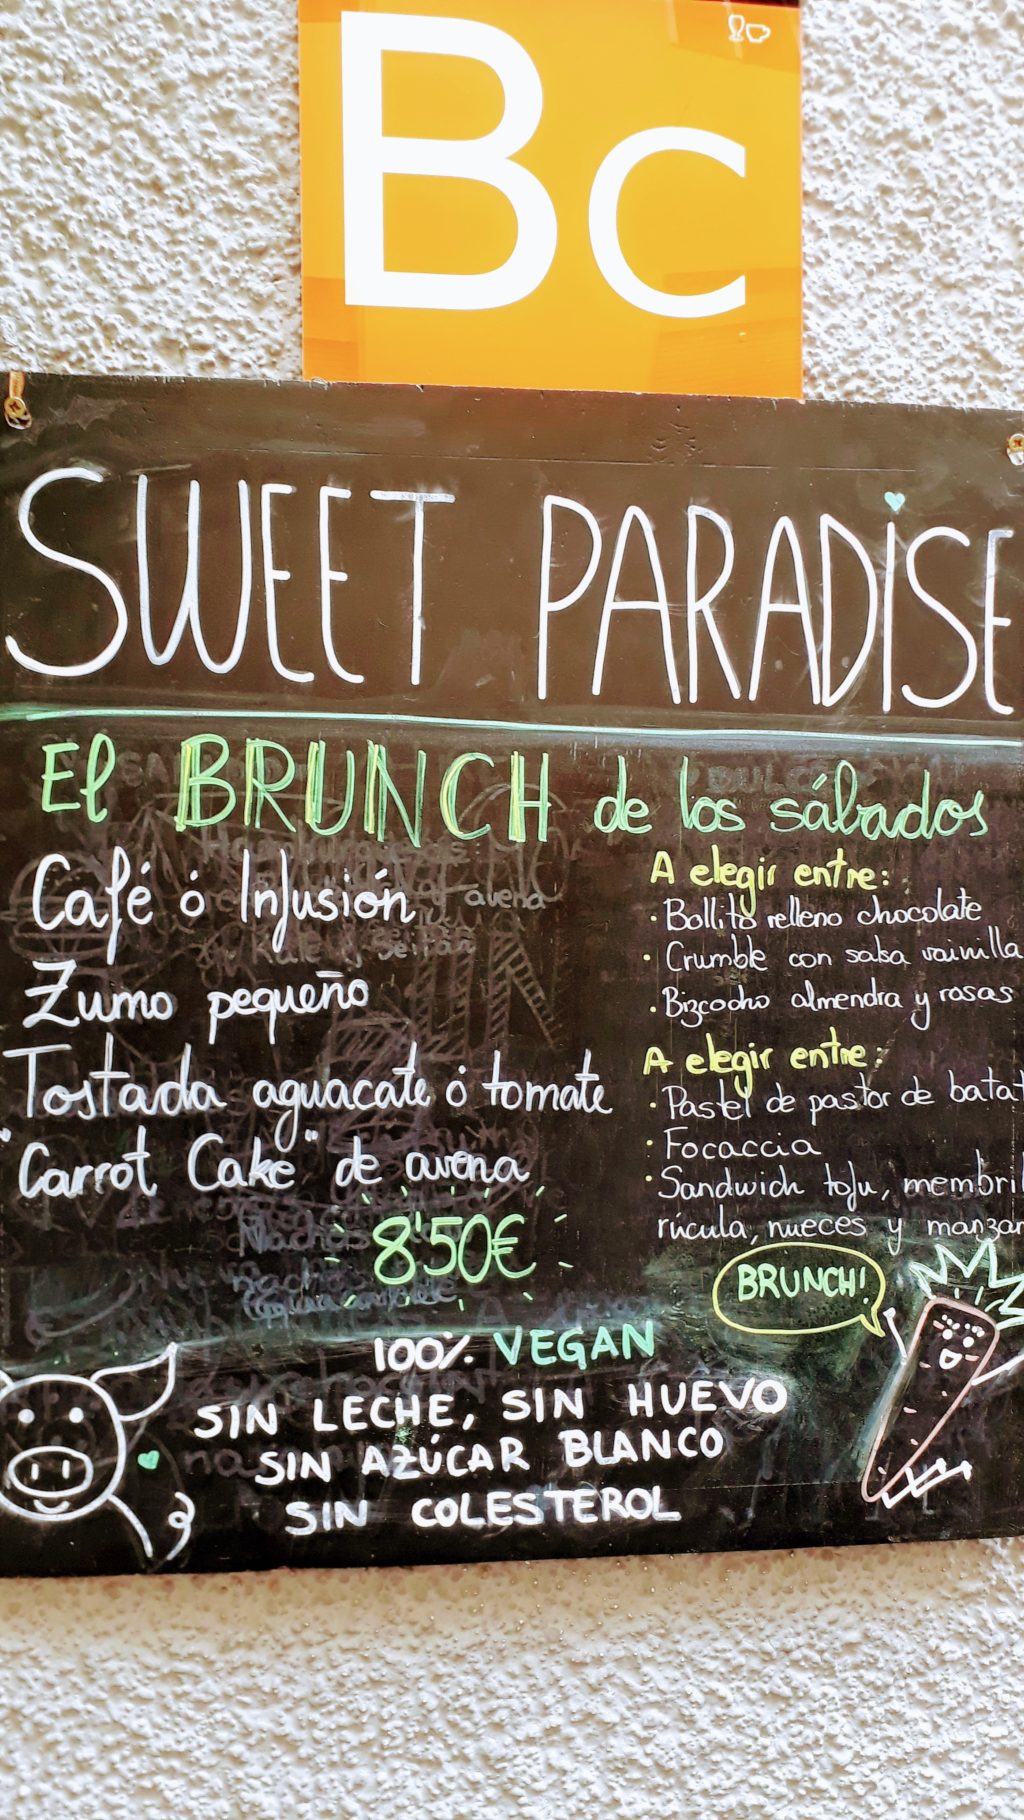 Bc
SWEET PARADISE
El BRUNCH de los sábados
Café ó Infusión
Zumo pequeño
Tostada aguacate ó tomate
"Carrot Cake" de avena
8'50€
A elegir entre:
· Bollito relleno chocolate
· Crumble con salsa vainilla
· Bizcocho almendra y rosas
A elegir entre:
· Pastel de pastor de batat
· Focaccia
· Sandwich tofu, membril
rúcula, nueces y manzan
BRUNCH!
100% VEGAN
SIN LECHE, SIN HUEVO
SIN AZÚCAR BLANCO
SIN COLESTEROL